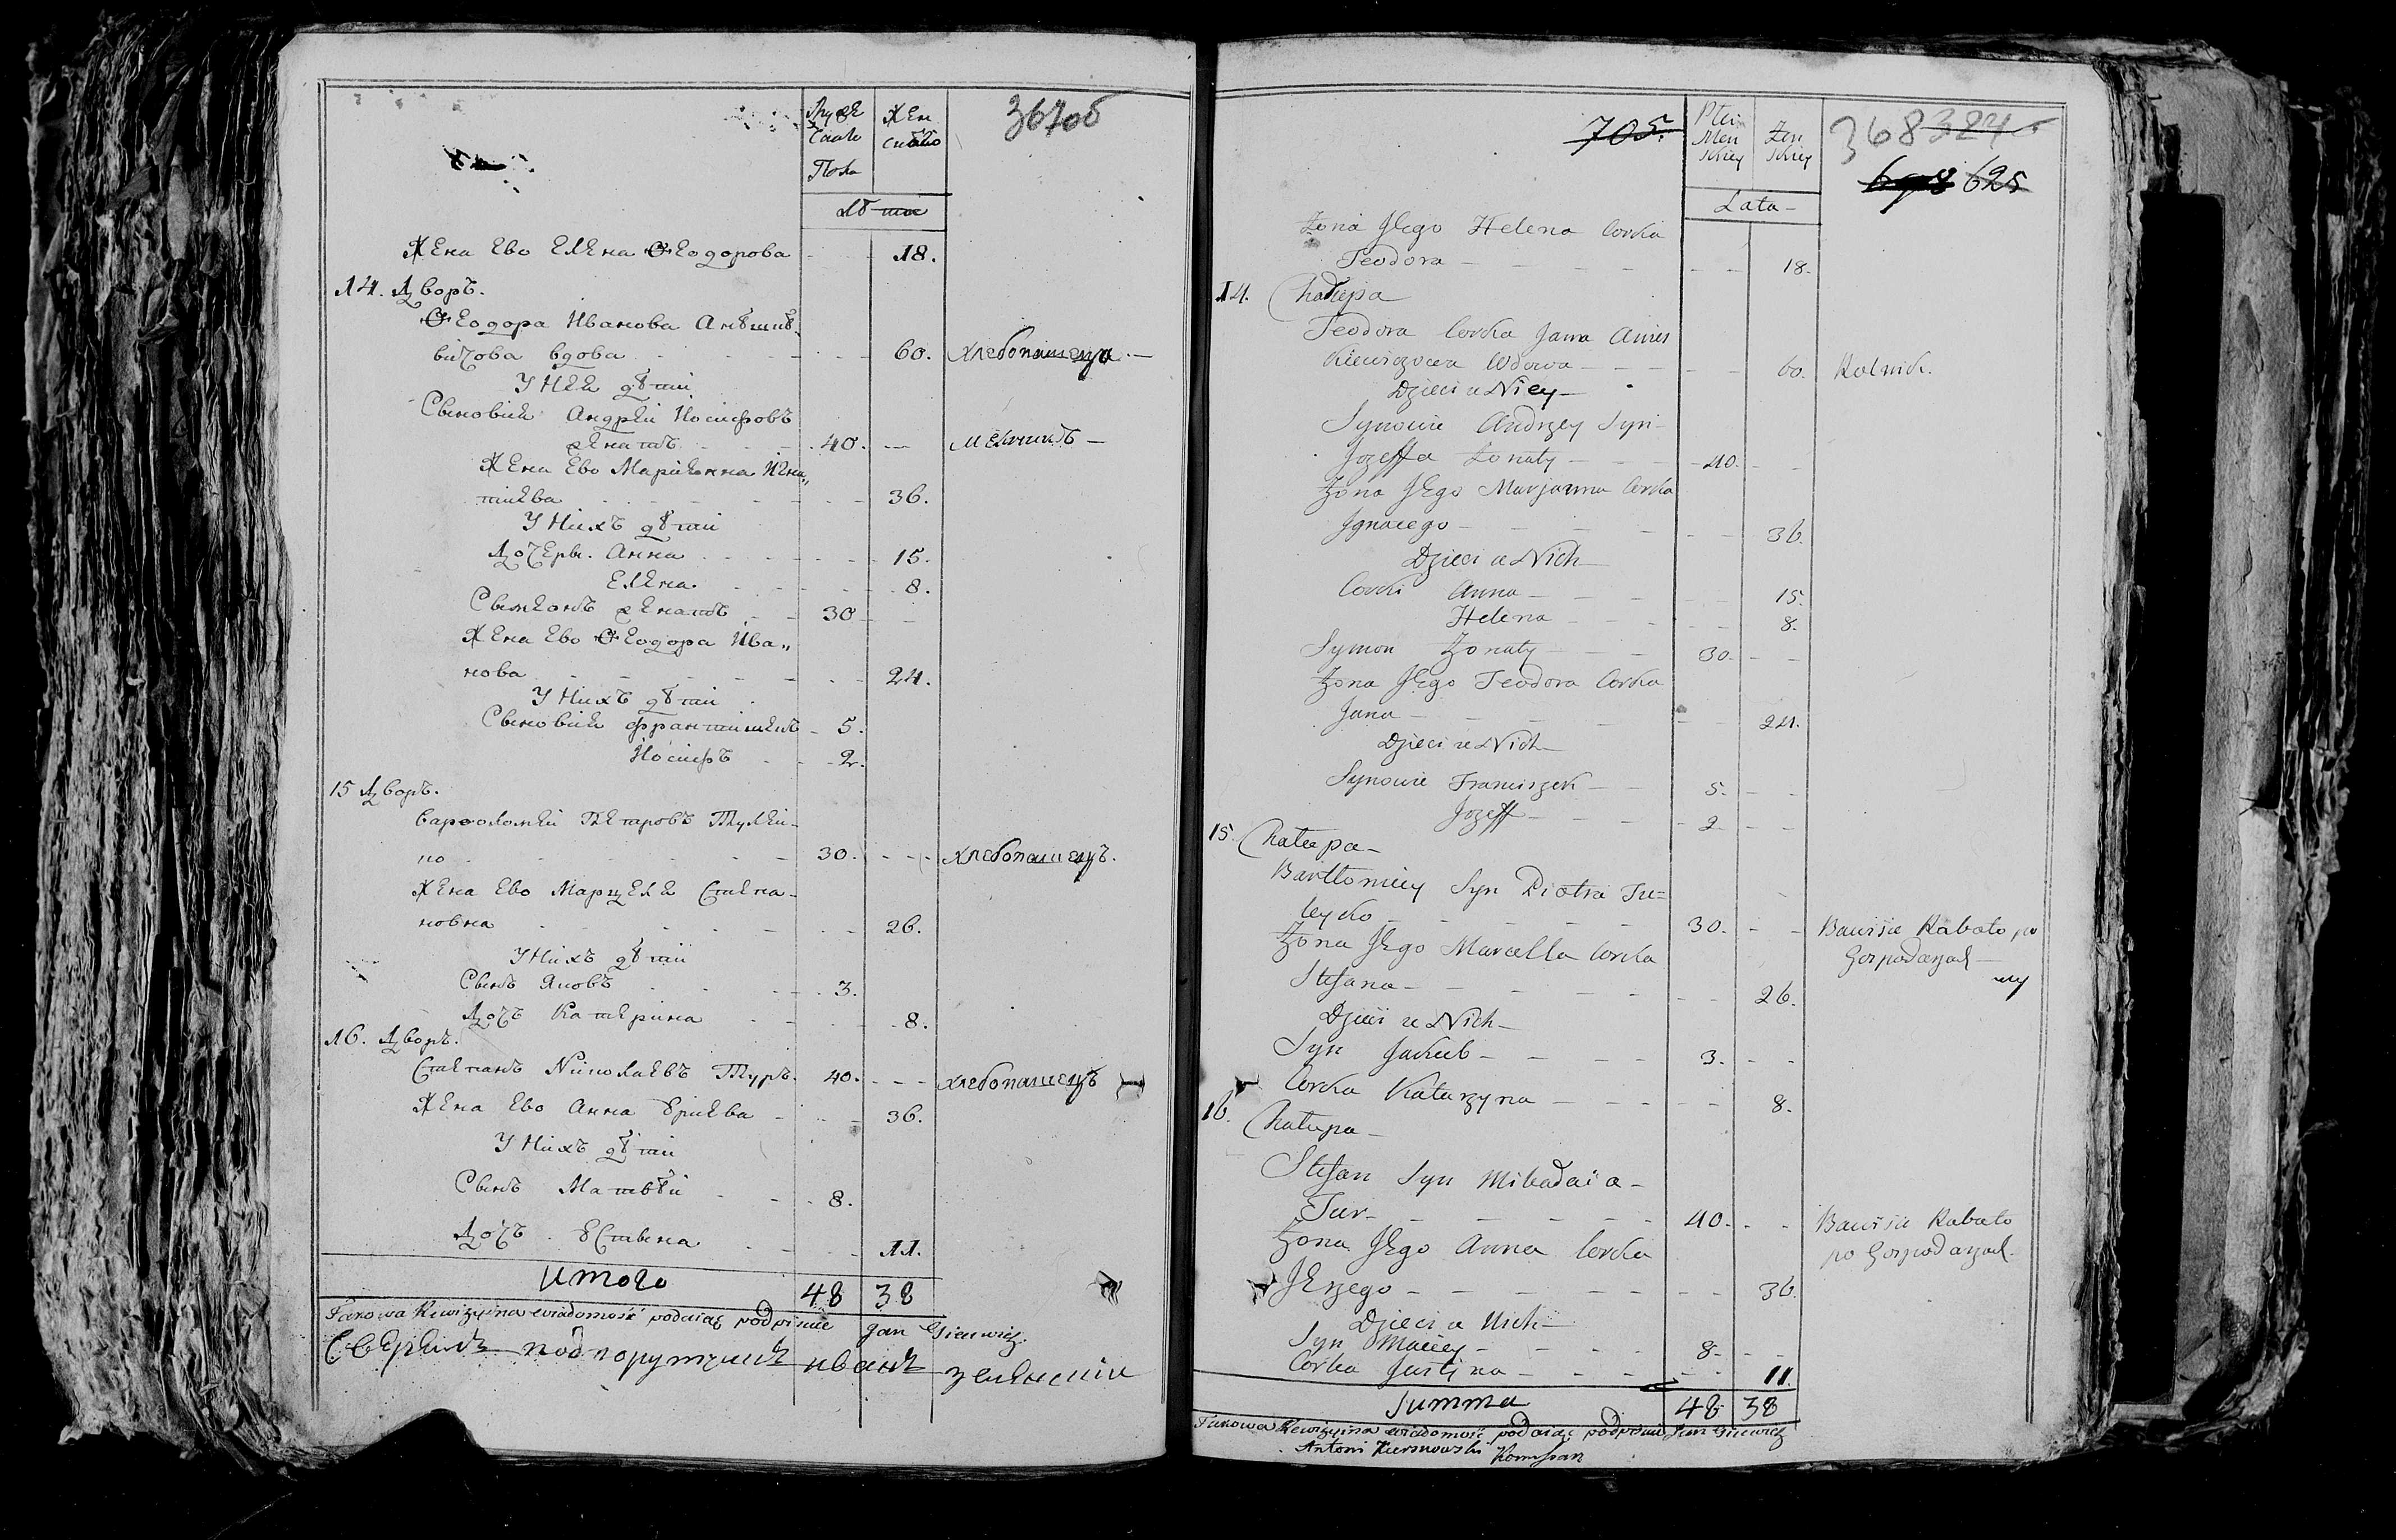 Мужеска го Пола
Женскаго
367об
Лѣта
Жена Ево Елена Ѳеодорова - - 18.
14. Дворъ.
Ѳеодора Иванова
вичова вдова - - 60. хлебопашецъ
У Неи дѣти
Сыновия Андрей Иосифовъ
женатъ - 40. —
Жена Ево Марияна Игна„
тиева - - 36.
У Нихъ дѣти
Дочерь. Анна - - 15.
Елена. - - 8.
Сымеонъ женатъ - - 30 -
Жена Ево Ѳеодора Ива„
нова - - 24.
У Нихъ дѣти
Сыновия Франтишекъ - 5.
Иосифъ - - 2.
15 Дворъ.
Варфоломей Петровъ Тулей-
ко - - 30. - - - хлебопашецъ.
Жена Ево Марцеля Степа-
новна - - 26.
У Нихъ дѣти
Сынъ Яковъ - - 3.
Дочь Катерина - - 8.
16. Дворъ.
Степанъ Николаевъ Туръ. 40. - - - хлебопашецъ
Жена Ево Анна Юриева - - 36.
У Нихъ дѣти
Сынъ Матвѣй - - 8.
Дочь. Юстына - - 11.
Итого 48 38
Takowa Rewizyina wiadomość podaiąc podpisuie Jan Giewicz.
подпорутчикъ иванъ
705.
Płci Męskiey
Żenskiey
368 384
698 625
Lata -
Żona Jego Helena Corka
Teodora - - - - 18.
14. Chałupa
Teodora Corka Jana Anis
kiewiczowa Wdowa - - - 60. Rolnik.
Dzieci u Niey -
Synowie Andrzey Syn -
Jozeffa Żonaty - - 40. - -
Żona Jego Marjanna Corka
Jgnacego - - - 36.
Dzieci u Nich
Corki Anna - - - 15.
Helena - - - 8.
Symon Żonaty - - 30. - -
Żona Jego Teodora Corka
Jana - - - - 24.
Dzieci u Nich -
Synowie Franciszek - - 5. - -
Jozeff - - - 2 - -
15. Chałupa -
Bartłomiey Syn Piotra Tu=
leyko - - - 30. - - Bawi sie Raboto po
Gospodarzach
Żona Jego Marcella Corka
Stefana - - - - 26.
Dzieci u Nich -
Syn Jakub - - - - 3. - -
Corka Katarzyna - - - - 8.
16. Chałupa -
Stefan Syn Mikołaia -
Tur - - - - 40. - - Bawi sie Raboto
po Gospodarzach.
Żona Jego Anna Corka
Jerzego - - - - 36.
Dzieci u Nich -
Syn Maciey - - - - 8. - -
Corka Justyna - - - - 11.
Summa 48 38
Takowa Rewizyina wiadomość podaiąc podpisuie Jan Giewicz
Antoni